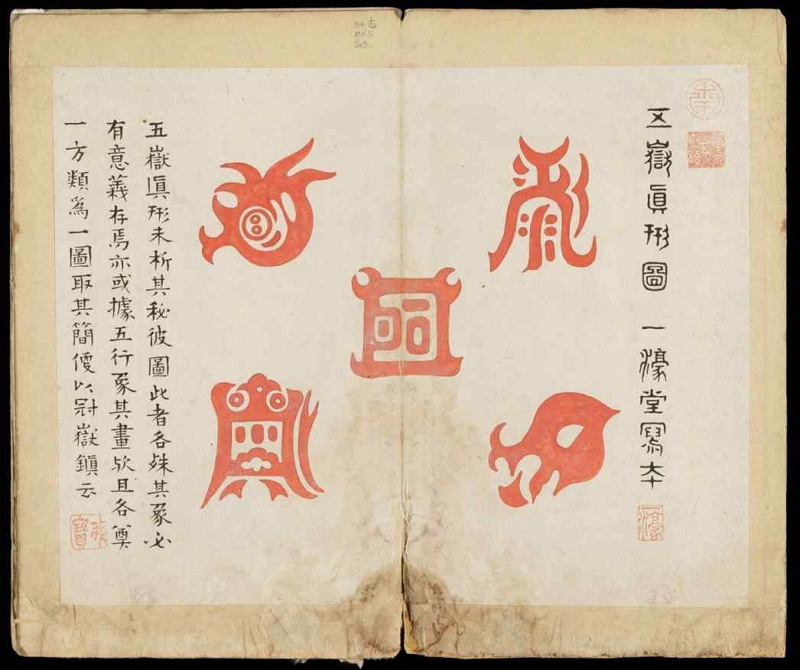 五嶽眞形圖 一濠堂寫本
五嶽眞形未析其秘彼圖此者各殊其象必
有意義存焉亦或據五行象其畫欤且各奠
一方類為一圖取其簡便以冠嶽鎮云